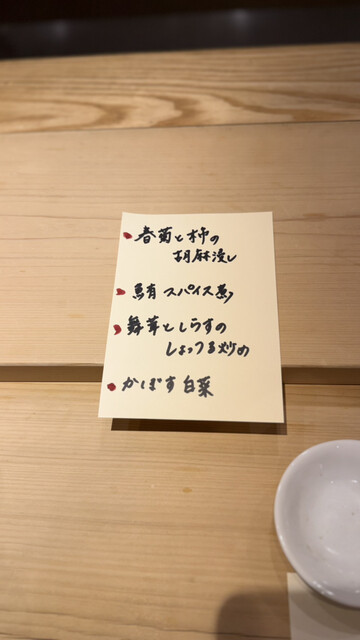 春菊と柿の
胡麻浸し
鮪スパイス煮
舞茸としらすの
しょっつる炒め
かぼす白菜